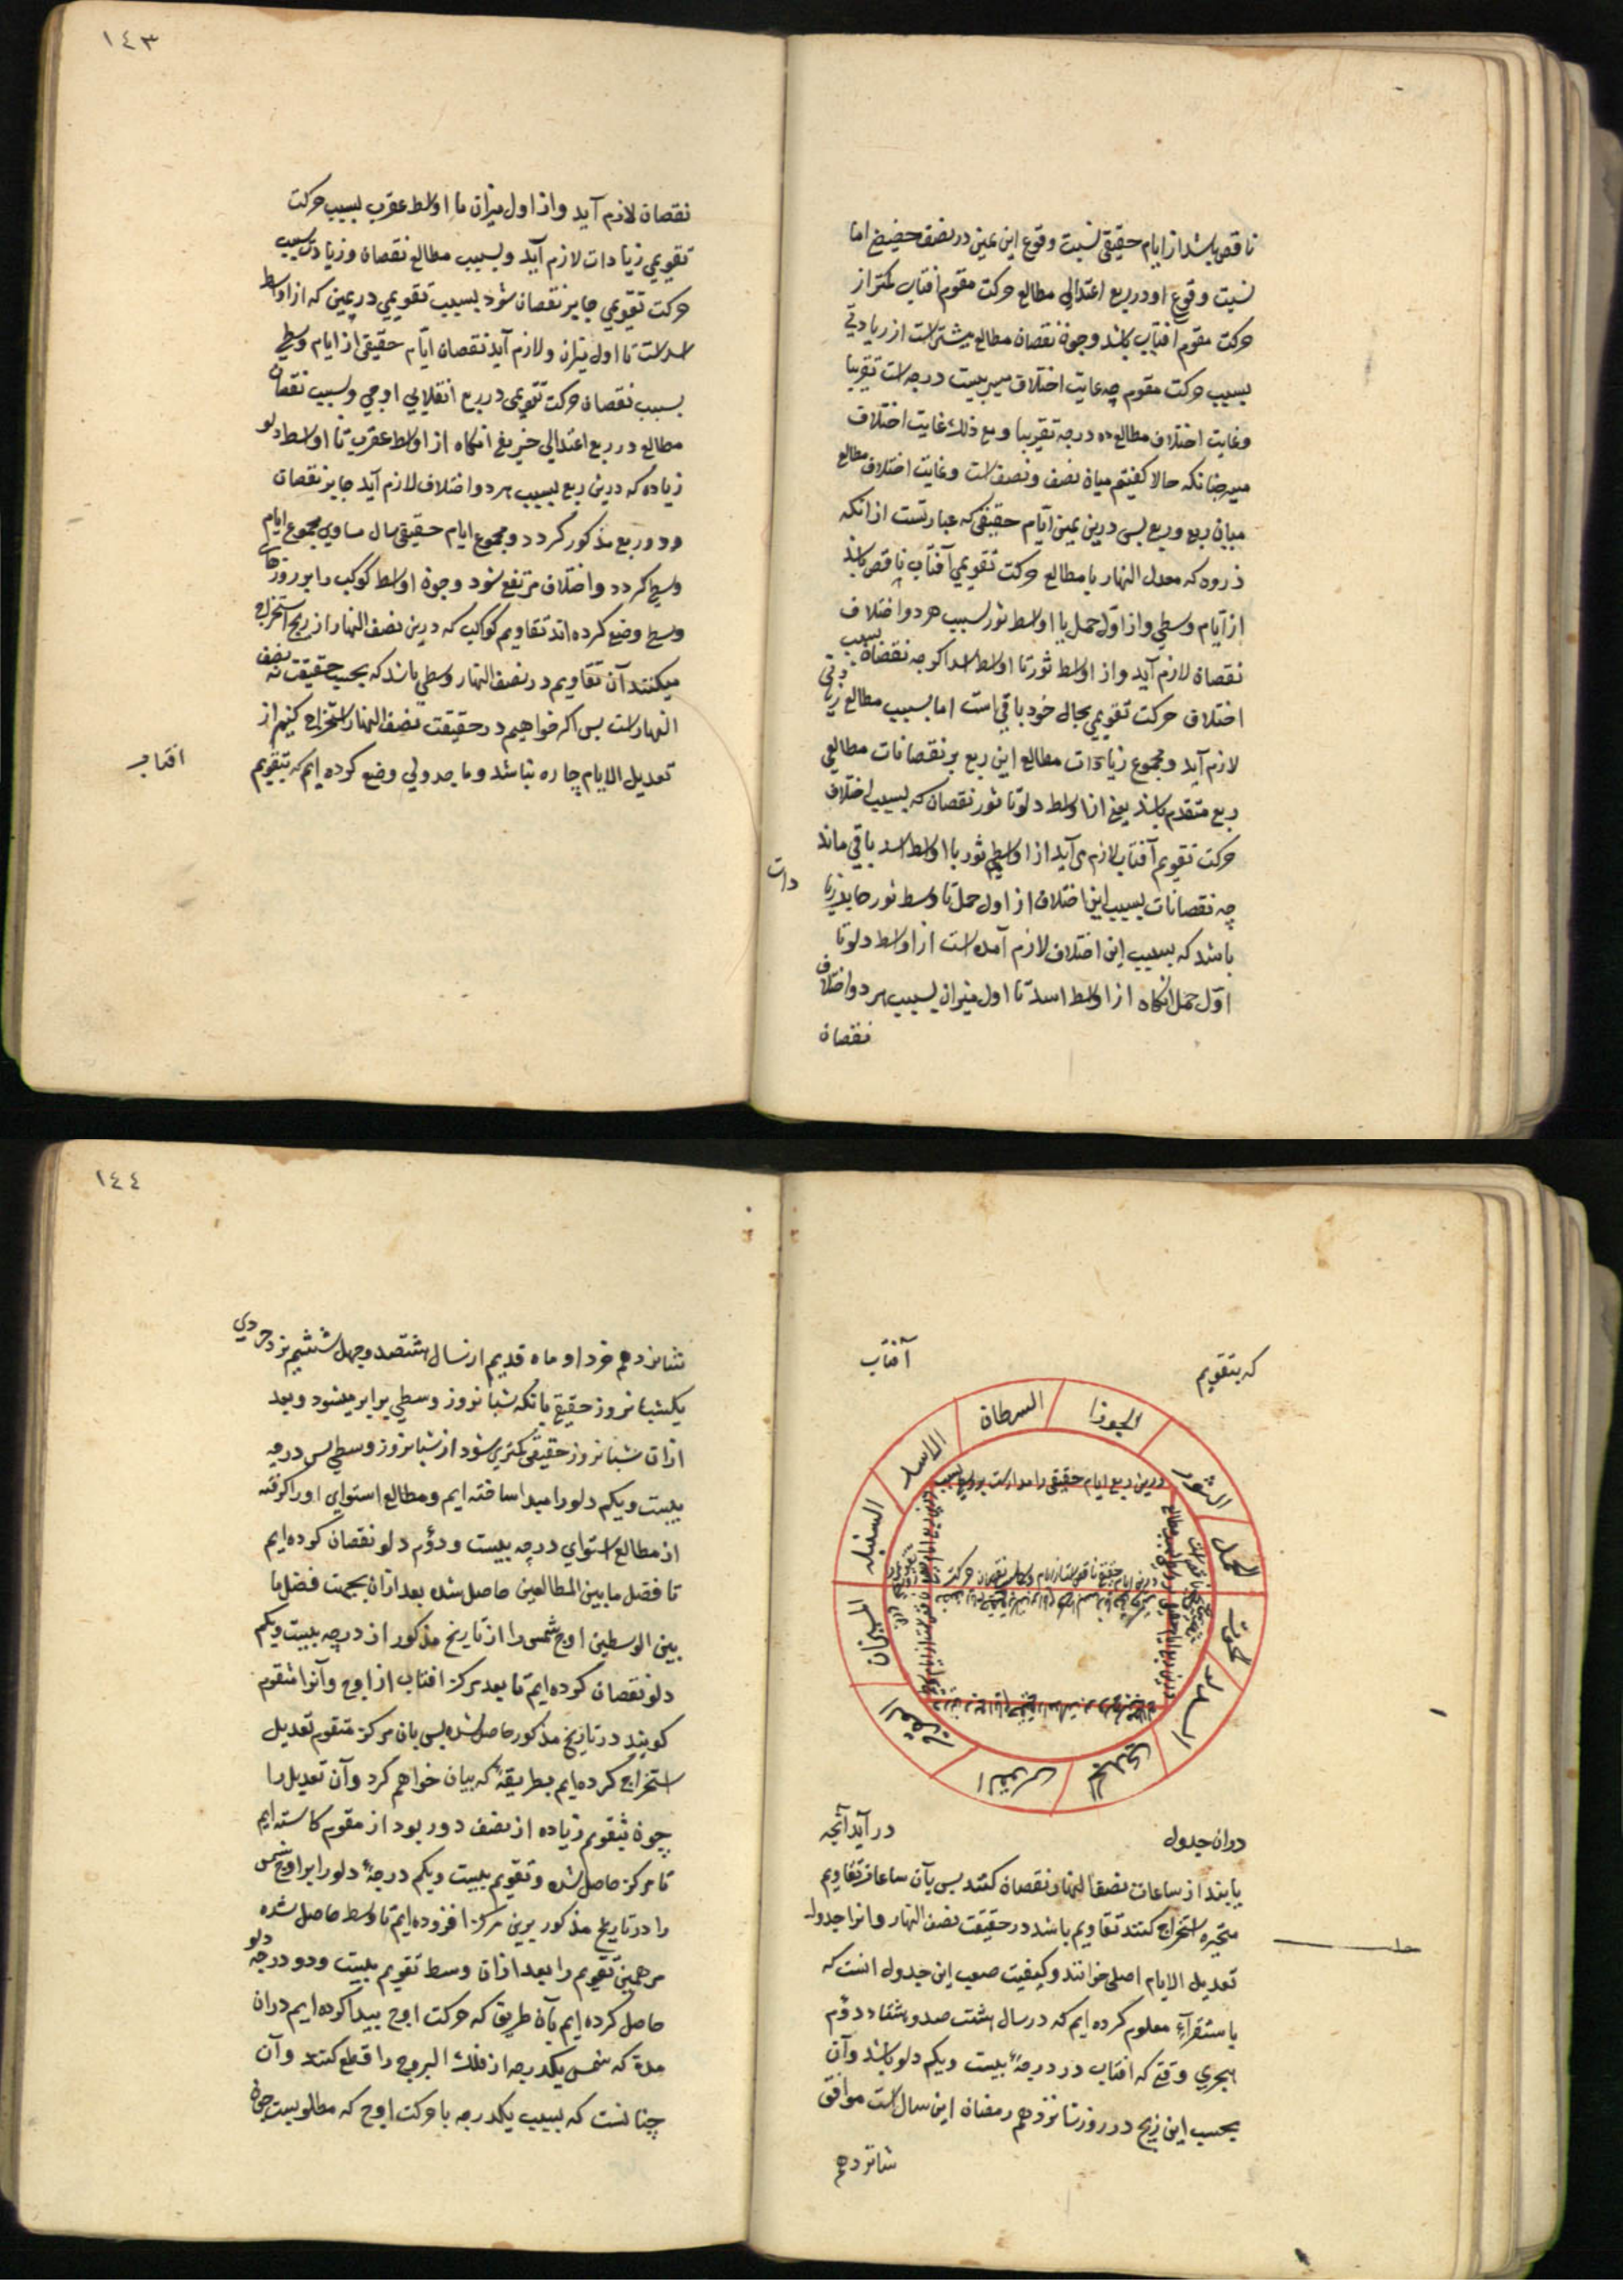 ناقص باشد از ایام حقیقی نسبت وقوع این یمین در نصف حضیض اما
نسبت وقوع او در ربع اعتدالی مطالع حرکت مقوم افتاب کمتر از
حرکت مقوم افتاب باشد وجون نقصان مطالع بیشتر است از زیادتی
بسبب حرکت مقوم چه غایت اختلاف مسیر بیست درجه است تقریبا
وغایت اختلاف مطالع ده درجه تقریبا ومع ذلك غایت اختلاف
مسیر چنانکه حالا کفتیم میان نصف ونصف است وغایت اختلاف مطالع
میان ربع وربع بس درین یمین ایام حقیقی که عبارتست از انکه
ذروه که معدل النهار با مطالع حرکت تقویمی آفتاب ناقص باشد
از ایام وسطی واز اول حمل تا اواسط ثور بسبب هر دو اختلاف
نقصان لازم آید واز اواسط ثور تا اواسط اسد اکرچه نقصان بسبب
اختلاف حرکت تقویمی بحال خود باقی است اما بسبب مطالع زیادتی
لازم آید ومجموع زیادات مطالع این ربع بر نقصانات مطالعی
ربع متقدم باشد یعنی از اواسط دلو تا ثور نقصان که بسبب اختلاف
حرکت تقویم آفتاب لازم می آید از اواسط ثور با اواسط اسد باقی ماند
چه نقصانات بسبب این اختلاف از اول حمل تا وسط ثور جابر زیا
دات
باشد که بسبب این اختلاف لازم آمده است از اواسط دلو تا
اول حمل انکاه از اواسط اسد تا اول میزان بسبب هر دو اختلاف
نقصان
١٤٣
نقصان لازم آید واز اول میزان تا اواسط عقرب بسبب حرکت
تقویمی زیادات لازم آید وبسبب مطالع نقصان وزیادت بسبب
حرکت تقویمی جابر نقصان شود بسبب تقویمی در یمین که از اواسط
اسد است تا اول میزان ولازم آید نقصان ایام حقیقی از ایام وسطی
بسبب نقصان حرکت تقویمی در ربع انقلابی اوجی وبسبب نقصان
مطالع در ربع اعتدالی خریفی انکاه از اواسط عقرب تا اواسط دلو
زیاده که درین ربع بسبب هر دو اختلاف لازم آید جابر نقصان
دو ربع مذکور کردد ومجموع ایام حقیقی سال مساوی مجموع ایام
وسطی کردد واختلاف مرتفع شود وجون اواسط کوکب را بر روزهای
وسطی وضع کرده اند تقاویم کواکب که درین نصف النهار از زیج استخراج
میکنند آن تقاویم در نصف النهار وسطی باشد که بحسب حقیقت نه نصف
النهار است بس اکر خواهیم در حقیقت نصف النهار استخراج کنیم از
تعدیل الایام چاره نباشد وما جدولی وضع کرده ایم که بتقویم
افتاب
که بتقویم
آفتاب
الحمل
الثور
الجوزا
السرطان
الاسد
السنبله
المیزان
العقرب
القوس
الجدی
الدلو
الحوت
درین ربع ایام حقیقی
در ان جدول
در آید آنچه
یابند از ساعات نصف النهار نقصان کنند بس بآن ساعات تقاویم
متحیره استخراج کنند تقاویم باشد در حقیقت نصف النهار وانرا جدول
تعدیل الایام اصلی خوانند وکیفیت صعب این جدول انست که
باستقرآء معلوم کرده ایم که در سال هشت صد وهشتاد ودوم
هجری وقتی که افتاب در درجهٔ بیست ویکم دلو باشد وآن
بحسب این زیج در روز شانزدهم رمضان این سال است موافق
شانزدهم
١٤٤
شانزدهم خرداد ماه قدیم از سال هشتصد وچهل ششم یزدجردی
یکشبانروز حقیقی بانکه شبانروز وسطی برابر میشود وبعد
ازان شبانروز حقیقی کمتری شود از شبانروز وسطی بس درجه
بیست ویکم دلو را مبدا ساخته ایم ومطالع استوای او را کرفته
از مطالع استوای درجه بیست ودوم دلو نقصان کرده ایم
تا فضل ما بین المطالعین حاصل شده بعد ازان بجهت فضل ما
بین الوسطین اوج شمس را از تاریخ مذکور از درجه بیست ویکم
دلو نقصان کرده ایم تا بعد مرکز افتاب از اوج وآنرا متقوم
کویند در تاریخ مذکور حاصل شده بس بان مرکز متقوم تعدیل
استخراج کرده ایم بطریقهٔ که بیان خواهم کرد وآن تعدیل را
چون بتقویم زیاده از نصف دور بود از مقوم کاسته ایم
تا مرکز حاصل شده وتقویم بیست ویکم درجهٔ دلو را بر اوج شمس
را در تاریخ مذکور برین مرکز افزوده ایم تا وسط حاصل شده
مر همین تقویم را بعد ازان وسط تقویم بیست ودو درجه دلو
حاصل کرده ایم بآن طریق که حرکت اوج بیدا کرده ایم دران
مدة که شمس یکدرجه از فلك البروج را قطع کنند وآن
چنانست که بسبب یکدرجه با حرکت اوج که مطلوبست جون